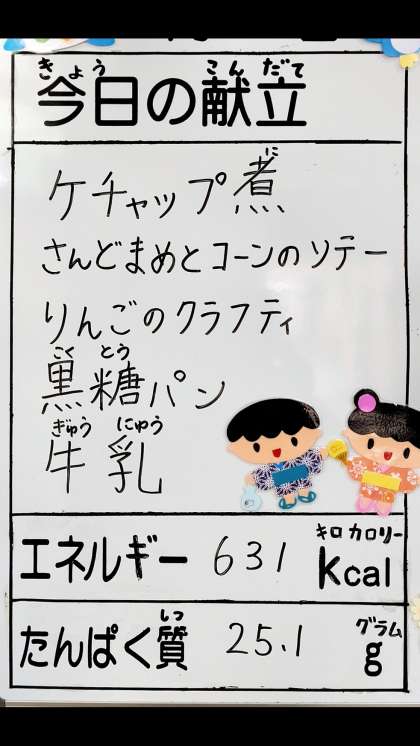 きょう こんだて
今日の献立
に
ケチャップ煮
さんどまめとコーンのソテー
りんごのクラフティ
こくとう
黒糖パン
ぎゅうにゅう
牛乳
キロカロリー
エネルギー 631 kcal
しつ グラム
たんぱく質 25.1 g